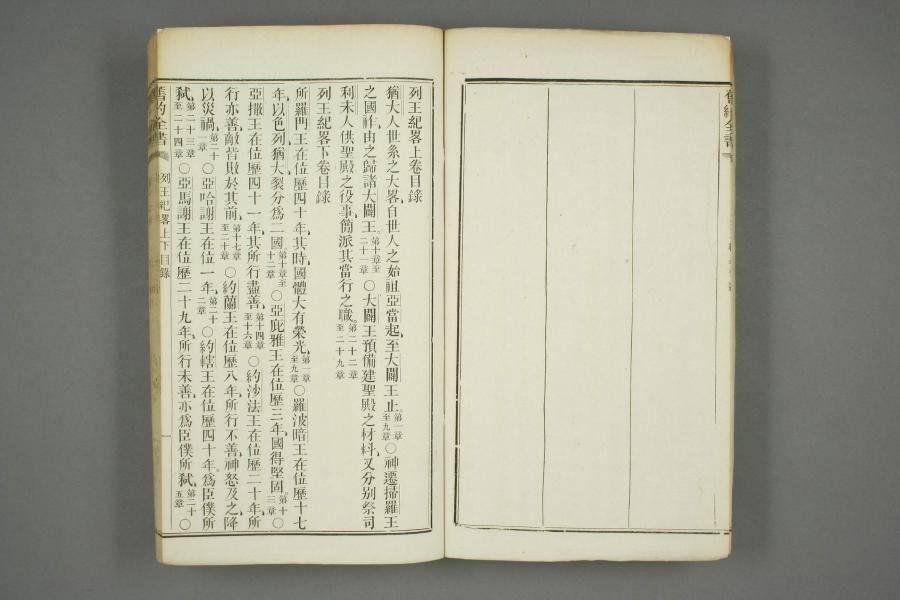 列王紀畧上卷目錄
猶大人世系之大畧、自世人之始祖亞當起、至大闢王止。第一章至九章○神遷掃羅王
之國祚、由之歸諸大闢王。第十章至二十一章○大闢王預備建聖殿之材料、又分別祭司
利未人、供聖殿之役事、簡派其當行之職。第二十二章至二十九章
列王紀畧下卷目錄
所羅門王在位歷四十年、其時國體大有榮光、第一章至九章○羅波暗王在位歷十七
年、以色列猶大裂分爲二國。第十章至十二章○亞庇雅王在位歷三年、國得堅固。第十三章○
亞撒王在位歷四十一年、其所行盡善、第十四章至十六章○約沙法王在位歷二十年、所
行亦善、敵皆敗於其前、第十七章至二十章○約蘭王在位歷八年、所行不善、神怒及之、降
以災禍、第二十一章○亞哈謝王在位一年、第二十二章○約轄王在位歷四十年。爲臣僕所
弒、第二十三章至二十四章○亞馬謝王在位歷二十九年、所行未善、亦爲臣僕所弒、第二十五章○
舊約全書
列王紀畧上下目錄
一
舊約全書